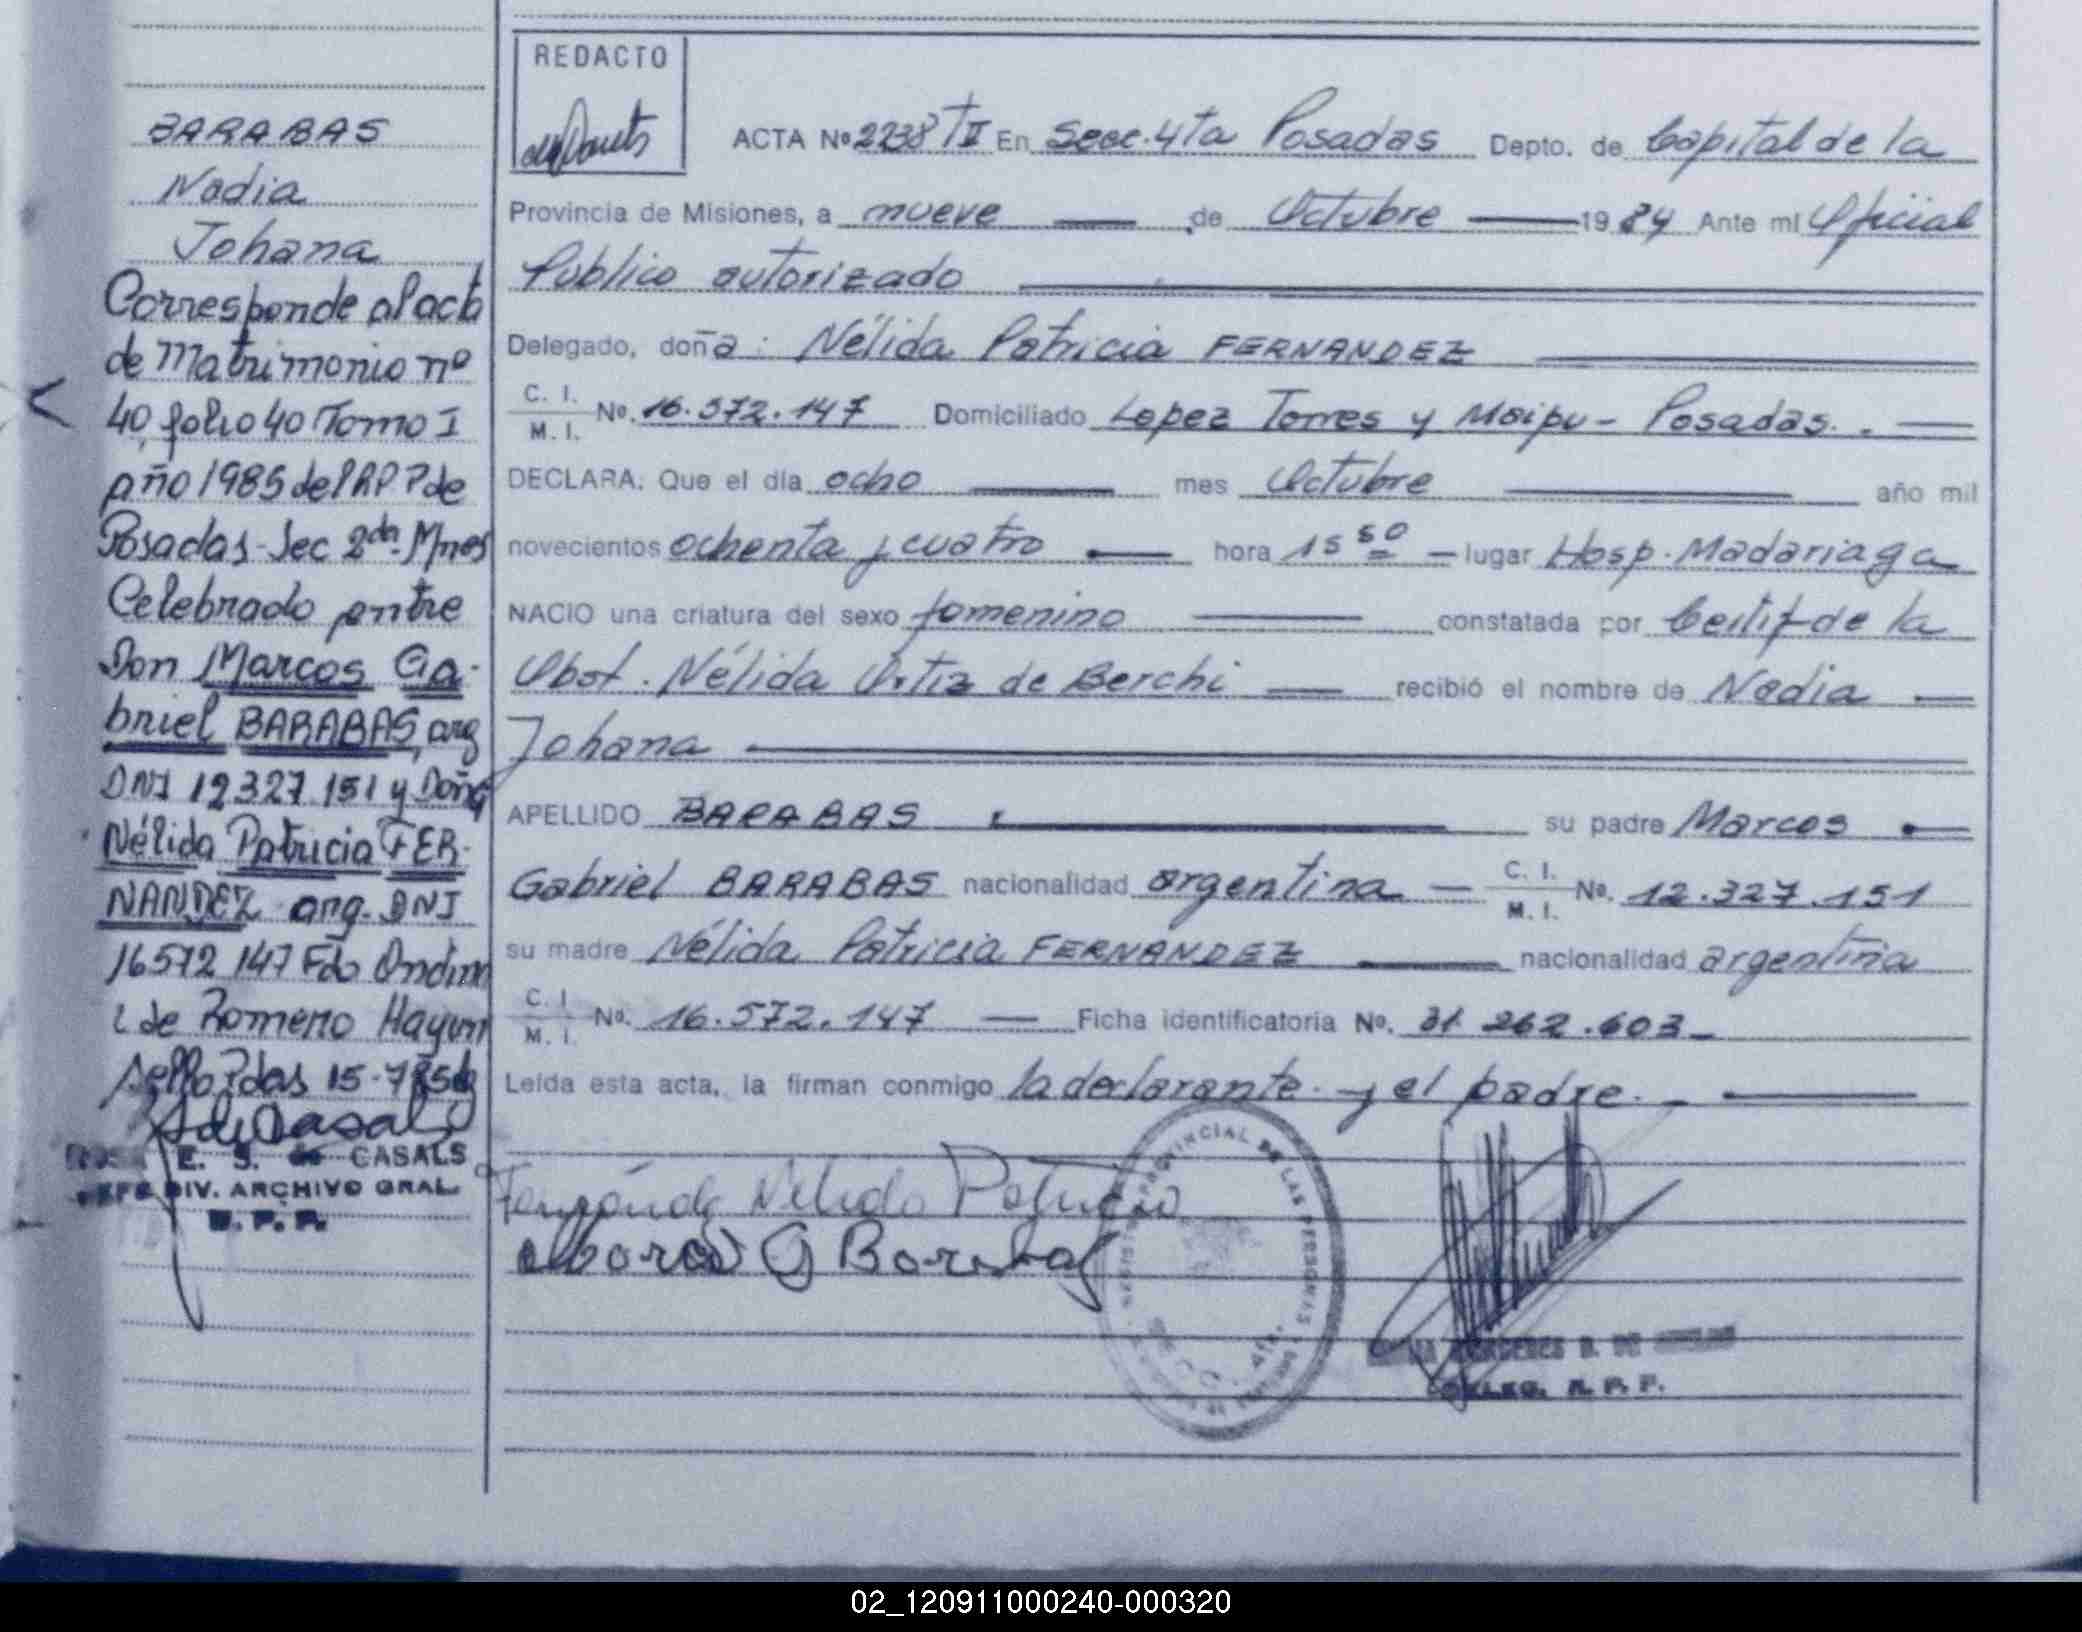 BARABAS
Nadia
Johana
Corresponde al acta
de Matrimonio nº
40 folio 40 Tomo I
año 1985 del RPP de
Posadas-Sec 2da-Mnes
Celebrado entre
Don Marcos Ga-
briel BARABAS, arg
DNI 12327 151 y Doña
Nélida Patricia FER-
NANDEZ arg. DNI
16572 147 Fdo
de Romero
Sello Pdas 15-7-85
E. S. de CASALS
JEFE DIV. ARCHIVO GRAL.
R. P. P.
REDACTO
ACTA Nº 2238 TII En Secc. 4ta Posadas Depto. de Capital de la
Provincia de Misiones, a nueve de Octubre 1984 Ante mí Oficial
Publico autorizado
Delegado, doña: Nélida Patricia FERNANDEZ
C. I. / M. I. Nº. 16.572.147 Domiciliado Lopez Torres y Maipu - Posadas. -
DECLARA: Que el día ocho mes Octubre año mil
novecientos ochenta y cuatro hora 15 50 lugar Hosp. Madariaga
NACIO una criatura del sexo femenino constatada por Certif de la
Obst. Nélida Ortiz de Berchi recibió el nombre de Nadia
Johana
APELLIDO BARABAS su padre Marcos
Gabriel BARABAS nacionalidad argentina C. I. / M. I. Nº. 12.327.151
su madre Nélida Patricia FERNANDEZ nacionalidad argentina
C. I. / M. I. Nº. 16.572.147 Ficha identificatoria Nº. 31 262.603 -
Leída esta acta, la firman conmigo la declarante y el padre. -
Nelida Patricia
G Barabas
PROVINCIAL DE LAS PERSONAS
DELEG. R. P. P.
02_120911000240-000320